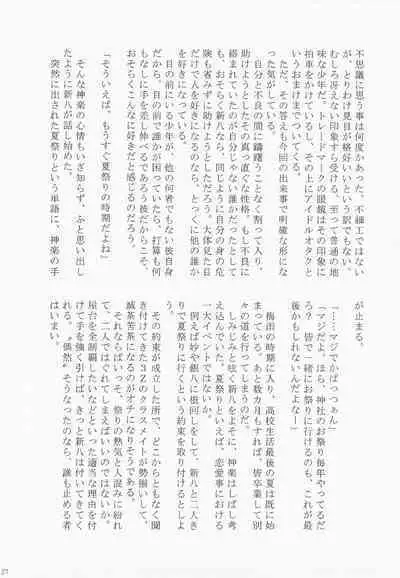 不思議に思う事は何度かあった。不細工ではない
が、とりわけ見目が格好いいという訳でもない。
むしろ冴えない印象すら受ける、至って普通の地
味な少年だ。トレードマークの眼鏡はその印象に
拍車をかけているし、その上にアイドルオタクと
いうおまけまでついてくる。
ただ、その答えも今回の出来事で明確な形にな
った気がしている。
自分と不良の間に躊躇うことなく割って入り、
助けようとしたその真っ直ぐな性格。もし不良に
絡まれていたのが自分じゃない誰かだったとして
も、おそらく新八なら、同じように自分の身の危
険も省みずに助けようとしただろう。大体見た目
だけで人を好きになるのなら、とっくに他の誰か
を好きになっている。
目の前にいる少年が、他の何者でもない彼自身
だから、目の前で誰かが困っていたら、打算も何
もなしに手を差し伸べるであろう彼だからこそ、
おそらくこんなに好きだと感じるのだろう。
「そういえば、もうすぐ夏祭りの時期だよね」
そんな神楽の心情もいざ知らず、ふと思い出し
たように新八が話し始めた。
突然に出された夏祭りという単語に、神楽の手
が止まる。
「……マジでかぱっつぁん」
「マジだよ。ほら、神社のお祭り毎年やってるだ
ろ？　皆で一緒にお祭りに行けるのも、これが最
後かもしれないんだよなー」
梅雨の時期に入り、高校生活最後の夏は既に始
まっている。あと数カ月もすれば、皆卒業して別
々の道を行ってしまうのだ。
しみじみと呟く新八をよそに、神楽はしばし考
え込んでいた。夏祭りといえば、恋愛事における
一大イベントではないか。
例えば妙や銀八に根回しをして、新八と二人き
りで夏祭りに行くという約束を取り付けるとしよ
う。
その約束が成立した所で、どこからともなく聞
き付けてきた３Ｚのクラスメイトが勢揃いして、
滅茶苦茶になるのがオチになりそうである。
それならばいっそ、祭りの熱気と人混みに紛れ
て、二人ではぐれてしまえばいいのではないか。
屋台を全制覇したいなどといった適当な理由を付
けて手を強く引けば、きっと新八は付いてきてく
れる。“偶然”そうなったのなら、誰も止める者
はいまい。
27